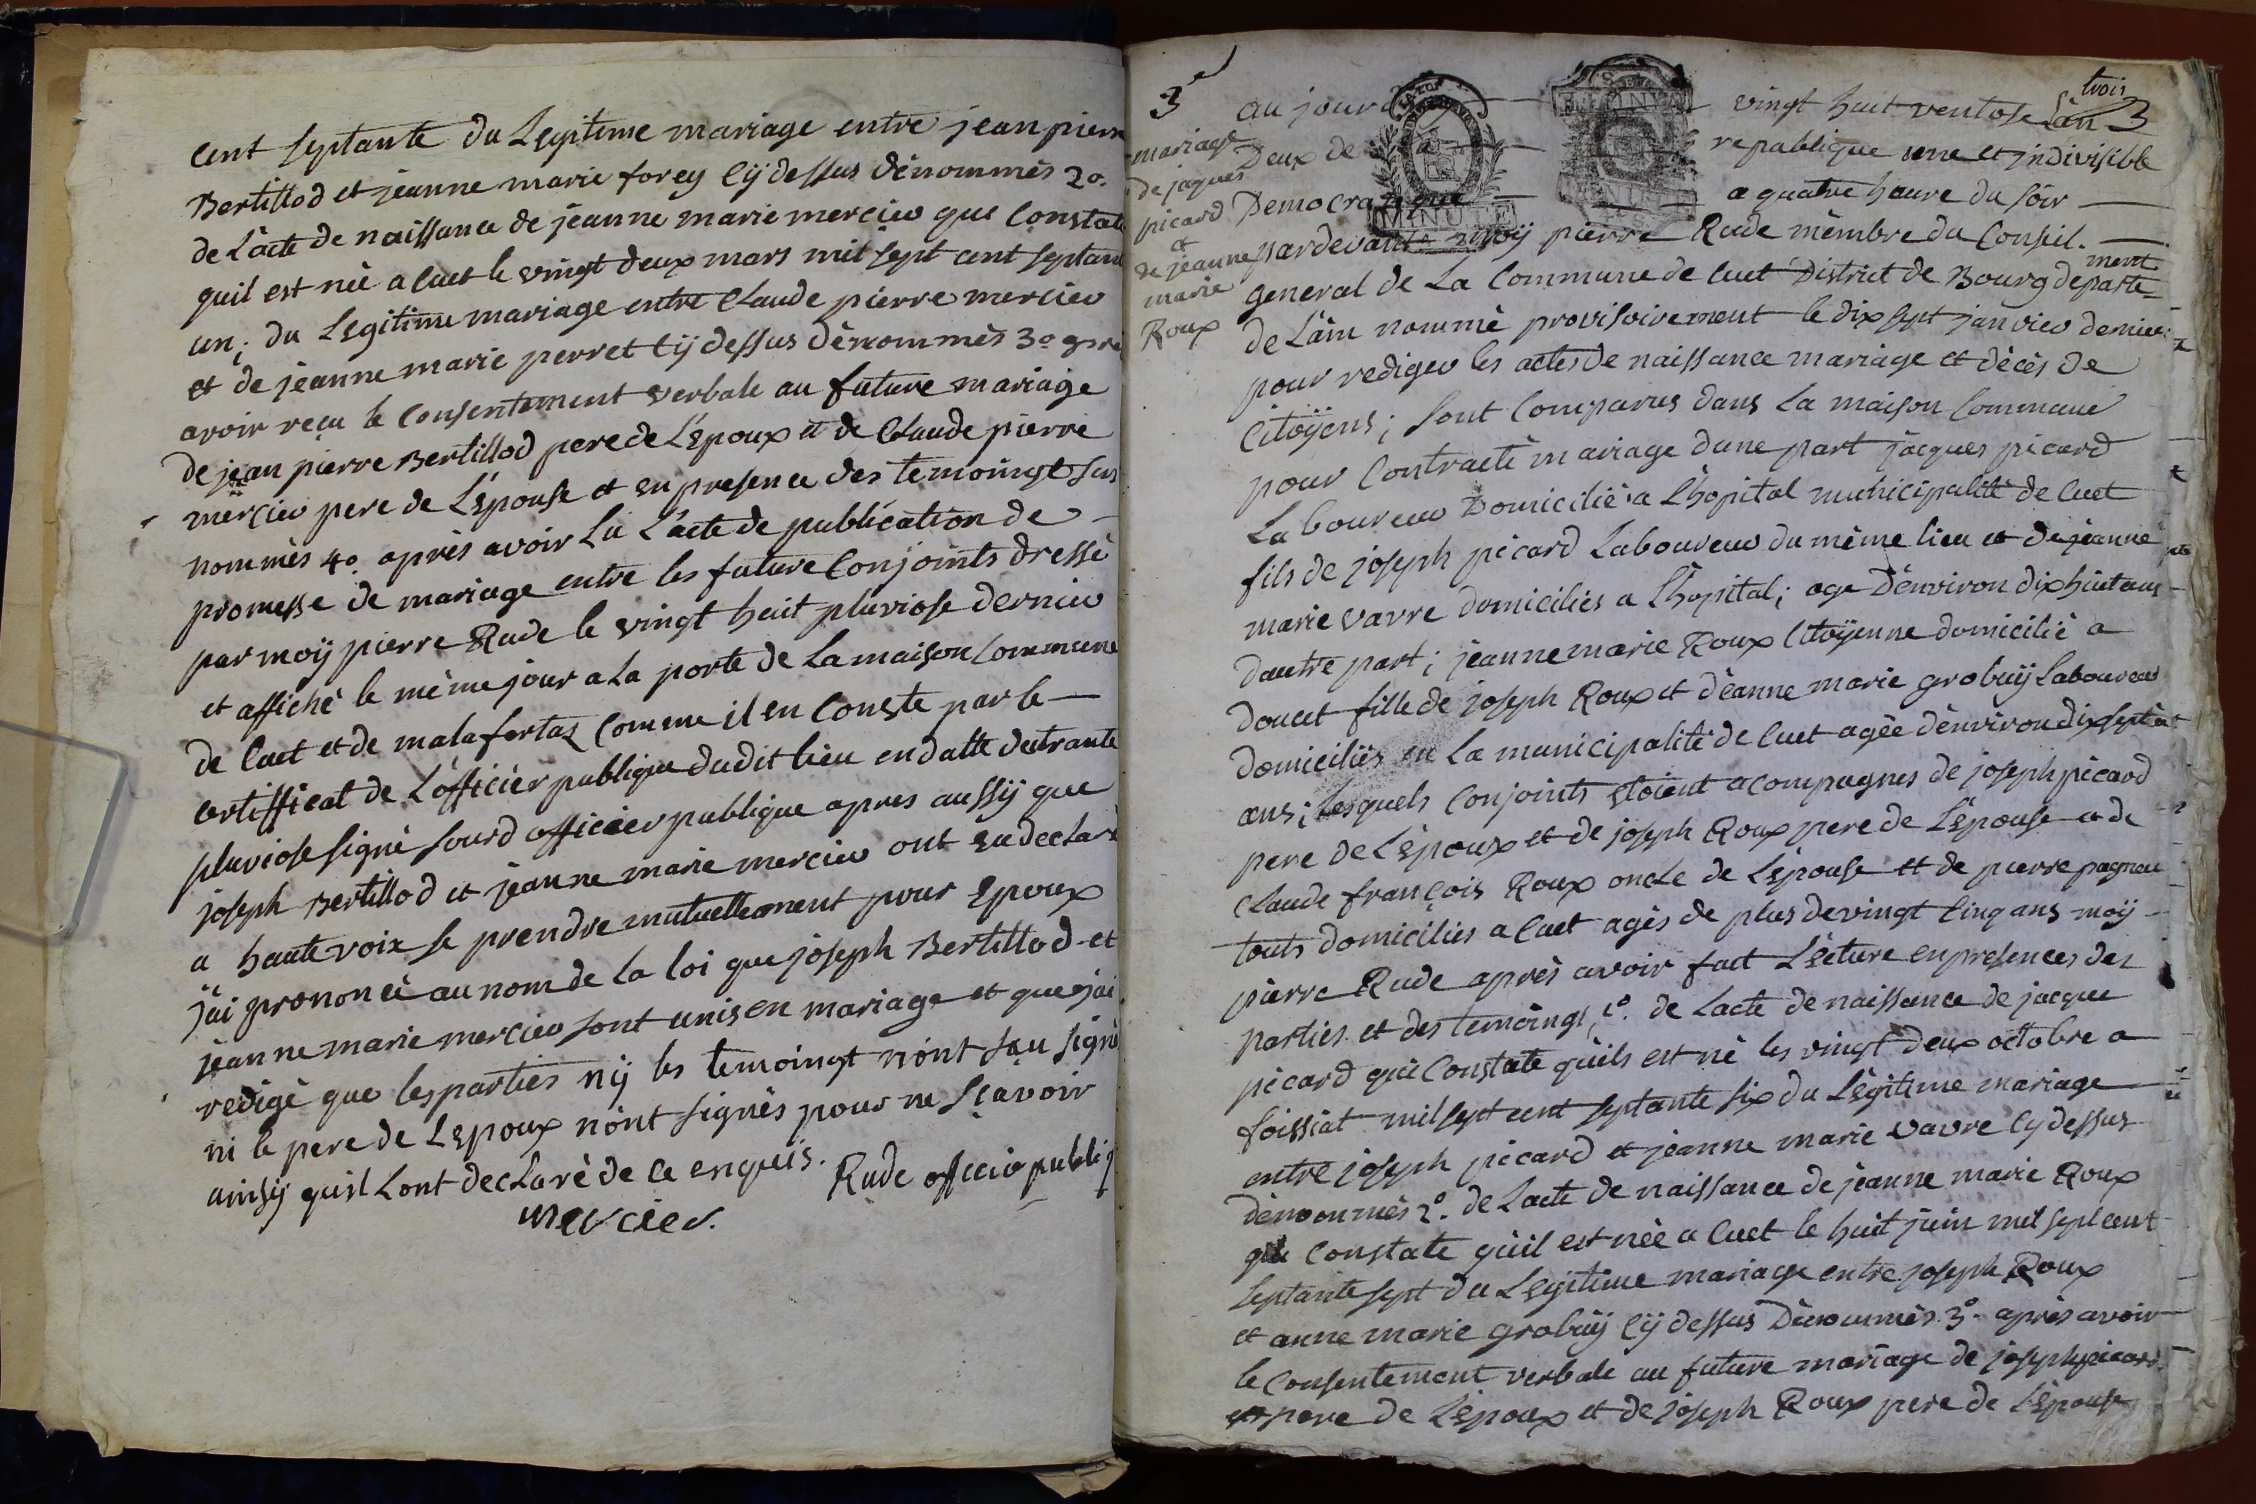 cent septante du Legitime mariage entre jean pierre
Bertillod et jeanne marie forey Cÿ dessus dénommés 2o.
de L'acte de naissance de jeanne marie mercier que Constate
quil est née a Cuet le vingt deux mars mil sept cent septante
un; du Legitime mariage entre Claude pierre mercier
et de jeanne marie perret Cÿ dessus dénommés 3o
avoir reçu le Consentement verbale au future mariage
de jean pierre Bertillod pere de L'Epoux et de Claude pierre
mercier pere de L'Epouse et en presence des temoingt sus
nommés 4o. après avoir Lu L'acte de publication de
promesse de mariage entre les future Conjoints dressé
par moÿ pierre Rude le vingt huit pluviose dernier
et affiché le même jour a La porte de La maison Commune
de Cuet et de malafertaz Comme il en Conste par le
certifficat de L'officier publique dudit lieu en datte du trante
pluviose signé sourd officier publique apres aussÿ que
joseph Bertillod et jeanne marie mercier ont eu declaré
a haute voix se prendre mutuellement pour Epoux
j'ai prononcé au nom de la loi que joseph Bertillod et
jeanne marie mercier sont unis en mariage et que j'ai
redigé que les parties nÿ les temoingt n'ont sçu signé
ni le pere de L'Epoux n'ont signés pour ne Sçavoir
ainsÿ qu'il L'ont declaré de ce enquis. Rude officier publiq
mercier.
trois
3e
3
mariage
de jaques
picard
et
de jeanne
marie
Roux
au jour vingt huit ventose L'an
Deux de La republique une et indivisible
Democratique a quatre heure du soir
pardevant moÿ pierre Rude membre du Conseil.
general de La Commune de Cuet District de Bourg departe=
ment
de L'ain nommé provisoirement le dix sept janvier dernier
pour rediger les actes de naissance mariage et décès de
Citoÿens; sont Comparus dans La maison Commune
pour Contracté mariage dune part jacques picard
Laboureur Domicilié a L'hopital municipalité de Cuet
fils de joseph picard Laboureur du même lieu et de jeanne
marie vavre domiciliés a L'hopital; age D'environ dix huit ans
dautre part; jeanne marie Roux Citoÿenne domicilié a
doucet fille de joseph Roux et d'eanne marie grobuÿ Laboureur
domiciliés en La municipalité de Cuet agée d'environ dix sept
ans; Lesquels Conjoints etoient acompagnes de joseph picard
pere de L'Epoux et de joseph Roux pere de L'Epouse et de
Claude françois Roux oncle de L'epouse et de pierre pagneu
touts domiciliés a Cuet agés de plus de vingt Cinq ans moÿ
pierre Rude après avoir fait L'ecture en presences des
parties et des temoingt, 1o. de L'acte de naissance de jacque
picard qui Constate qu'ils est né les vingt deux octobre a
foissiat mil sept cent septante six du Légitime mariage
entre joseph picard et jeanne marie vavre Cy dessus
dénommés 2o. de L'acte de naissance de jeanne marie Roux
qui Constate qu'il est née a Cuet le huit juin mil sept cent
septante sept du Legitime mariage entre joseph Roux
et anne marie grobuÿ Cÿ dessus Dénommés 3o. après avoir
le Consentement verbale au future mariage de joseph picard
pere de L'Epoux et de joseph Roux pere de L'Epouse
MINUTE